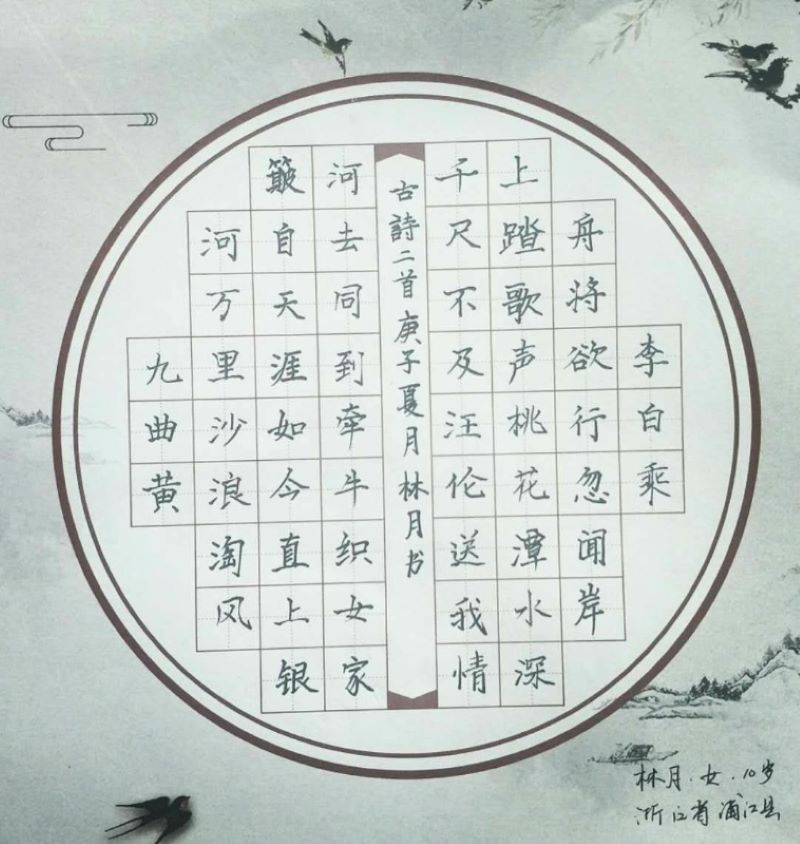 李白乘
舟将欲行忽闻岸
上踏歌声桃花潭水深
千尺不及汪伦送我情
九曲黄
河万里沙浪淘风
簸自天涯如今直上银
河去同到牵牛织女家
古詩二首庚子夏月林月书
林月.女.10岁
浙江省浦江县